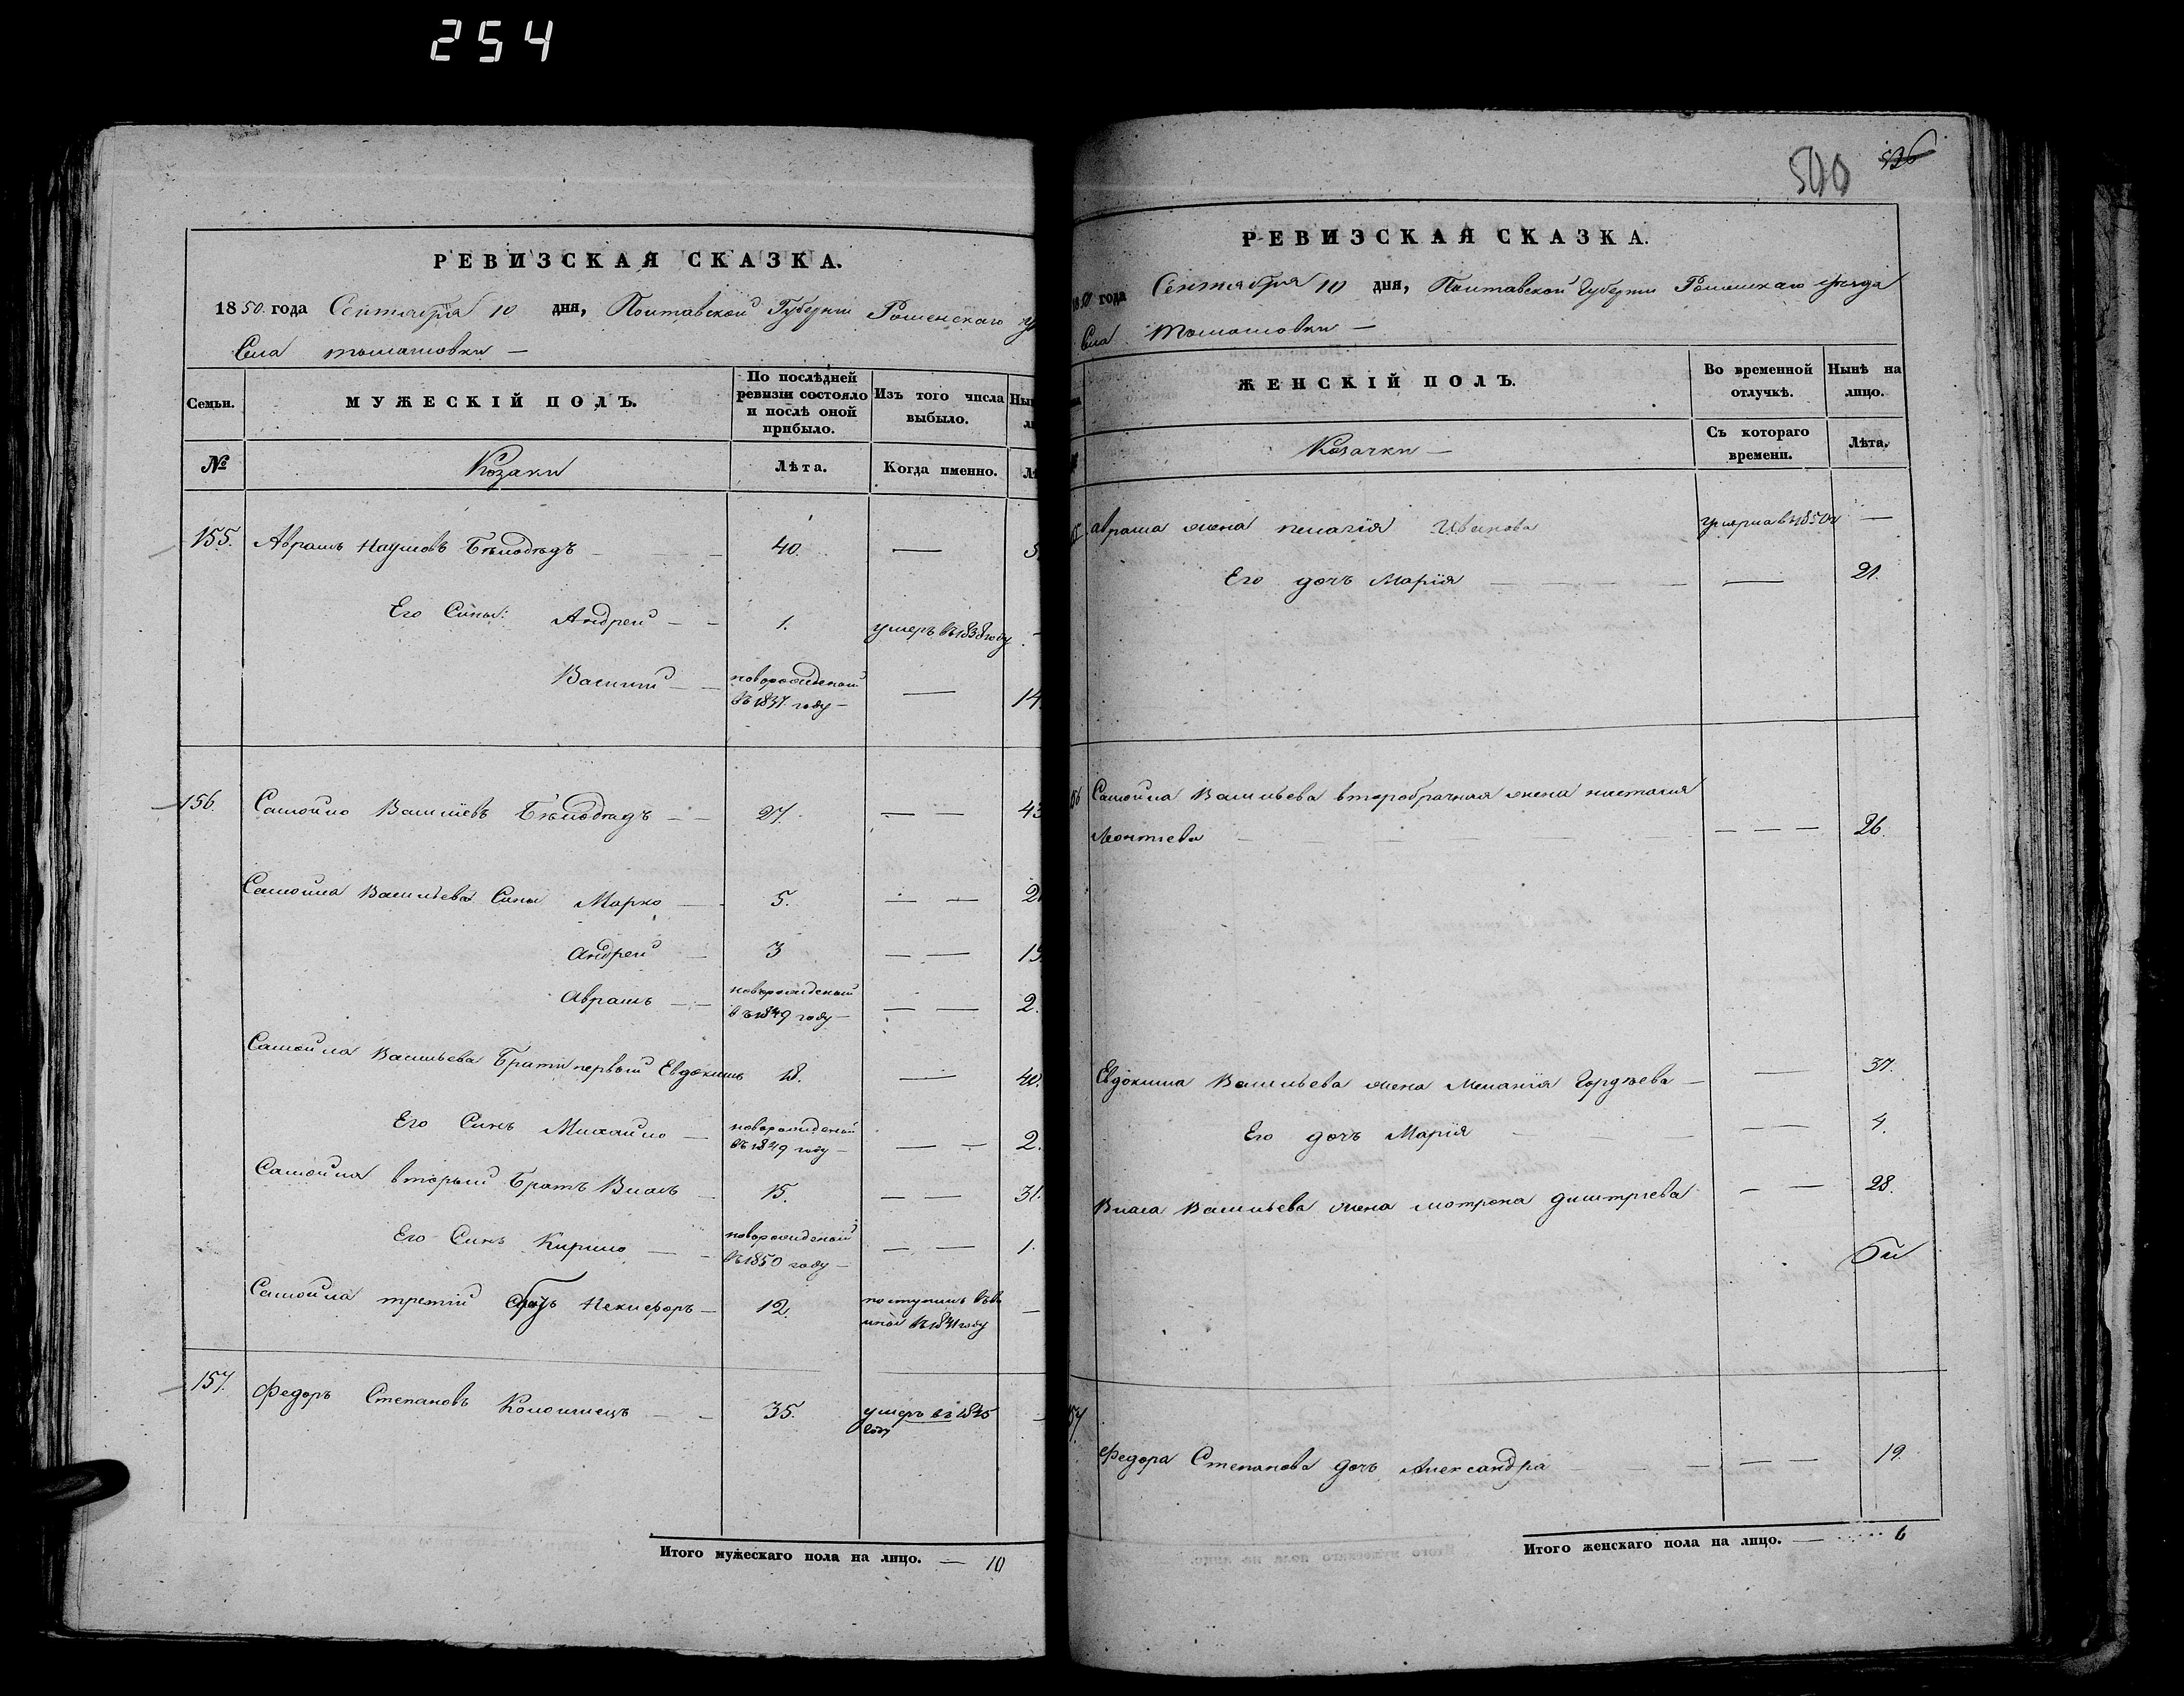 254
РЕВИЗСКАЯ СКАЗКА.
1850 года Сентября 10 дня, Полтавской Губернии Роменскаго
Села Томашовки —
Семьи. МУЖЕСКІЙ ПОЛЪ. По послѣдней ревизіи состояло и послѣ оной прибыло. Изъ того числа выбыло.
№ Козаки Лѣта. Когда именно.
155. Аврамъ Наумовъ Бѣлодѣдъ — 40. —
Его Сины: Андрей — 1. умеръ въ 1838 году
Василий — новорожденой въ 1837 году — — 14.
156. Самойло Василіевъ Бѣлодѣдъ — 27. — 43
Самойла Васильева Сины Марко — 5. —
Андрей — 3 —
Аврамъ — новорожденый въ 1849 году — — 2.
Самойла Васильева Братъ первый Евдокимъ 18. — 40.
Его Синъ Михайло — новорожденый въ 1849 году — — 2.
Самойла вторый Братъ Власъ — 15. — 31.
Его Синъ Кирило — новорожденый въ 1850 году — — 1.
Самойла третій братъ Некифоръ — 12. —
157. Федоръ Степановъ Коломиецъ — 35. умеръ въ 1845
Итого мужескаго пола на лицо. — 10
500 526
РЕВИЗСКАЯ СКАЗКА.
1850 года Сентября 10 дня, Полтавской Губерніи Роменскаго уѣзда
Села Томашовки —
ЖЕНСКІЙ ПОЛЪ. Во временной отлучкѣ. Нынѣ на лицо.
Козачки — Съ котораго времени. Лѣта.
Аврама жена Пелагія Иванова умерла въ 1850 г —
Его дочъ Марія — — 21.
Самойла Васильева второбрачная жена Насталия
Леонтиева — — 26.
Евдокима Васильева жена Меланія Гордѣева — — 37.
Его дочъ Марія — — 4.
Власа Васильева жена Мотрона Димтриева — 28.
Федора Степанова дочъ Александра — — 19.
Итого женскаго пола на лицо. — 6